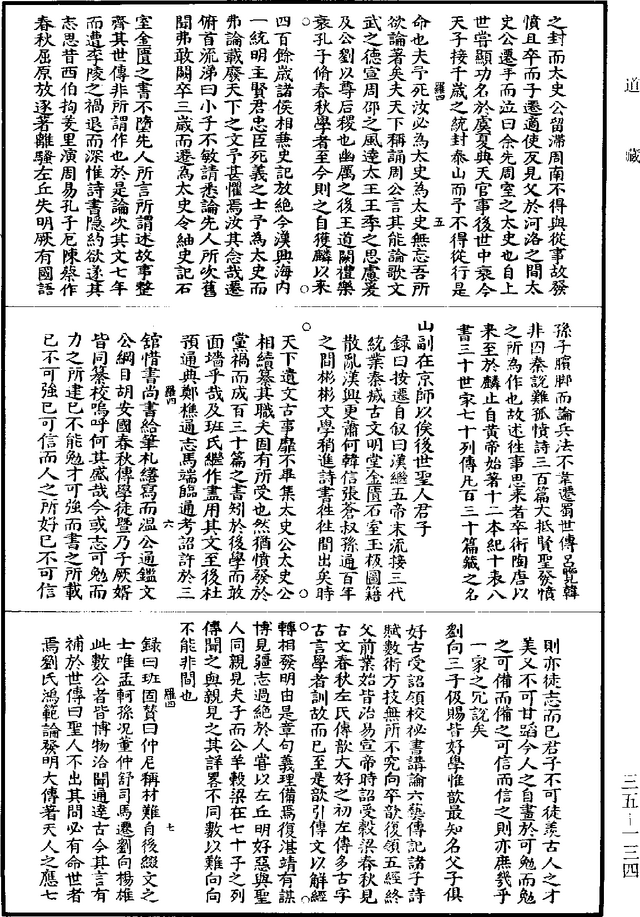 道藏
之封而太史公留滯周南不得與從事故發
憤且卒而子遷適使反見父於河洛之間太
史公遷手而泣曰余先周室之太史也自上
世嘗顯功名於虞夏典天官事後世中衰今
天子接千歲之統封泰山而予不得從行是
羅四 五
命也夫予死汝必為太史為太史無忘吾所
欲論著矣夫天下稱誦周公言其能論歌文
武之德宣周邵之風達太王王季之思慮爰
及公劉以尊后稷也幽厲之後王道闕禮樂
衰孔子脩春秋學者至今則之自獲麟以來
四百餘歲諸侯相兼史記放絕今漢興海內
一統明主賢君忠臣死義之士予為太史而
弗論載廢天下之文予甚懼焉汝其念哉遷
俯首流涕曰小子不敏請悉論先人所次舊
聞弗敢闕卒三歲而遷為太史令紬史記石
室金匱之書不墮先人所言所謂述故事整
齊其世傳非所謂作也於是論次其文七年
而遭李陵之禍退而深惟詩書隱約欲遂其
志思昔西伯拘羑里演周易孔子厄陳蔡作
春秋屈原放逐著離騷左丘失明厥有國語
孫子臏脚而論兵法不韋遷蜀世傳呂覽韓
非囚秦說難孤憤詩三百篇大抵賢聖發憤
之所為作也故述往事思來者卒術陶唐以
來至於麟止自黃帝始著十二本紀十表八
書三十世家七十列傳凡百三十篇之名
山副在京師以俟後世聖人君子
錄曰按遷自叙曰漢繼五帝末流接三代
統業秦城古文明堂金匱石室玉板圖籍
散亂漢興更蕭何韓信張蒼叔孫通百年
之間彬彬文學稍進詩書往往間出矣時
天下遺文古事靡不畢集太史公太史公
相續纂其職夫固有所受也然猶憤發於
蠶禍而成百三十篇之書矧於後學而敢
面墻乎哉及班氏繼作盡用其文至後杜
預通典鄭樵通志馬端臨通考詔許於三
羅四 六
舘惜書尚書給筆札繕寫而溫公通鑑文
公綱目胡安國春秋傳學徒暨乃子厥婿
皆同纂校嗚呼何其盛哉今或志可勉而
力之所逮已不能勉才可強而書之所載
已不可強已可信而人之所好已不可信
則亦徒志而已君子不可徒羨古人之才
美又不可甘蹈今人之自畫於可勉而勉
之可備而備之可信而信之則亦庶幾乎
一家之冗說矣
劉向三子伋賜皆好學惟歆最知名父子俱
好古受詔領校祕書講論六藝傳記諸子詩
賦數術方技無所不究向卒歆後領五經終
父前業始皆治易宣帝時詔受穀梁春秋見
古文春秋左氏傳歆大好之初左傳多古字
古言學者訓故而已至是歆引傳文以解經
轉相發明由是章句義理備焉復湛靖有謀
博見疆志過絕於人嘗以左丘明好惡與聖
人同親見夫子而公羊穀梁在七十子之列
傳聞之與親見之其詳畧不同數以難向向
不能非間也
羅四 七
錄曰班固贊曰仲尼稱材難自後綴文之
士唯孟軻孫況董仲舒司馬遷劉向楊雄
此數公者皆博物洽聞通達古今其言有
補於世傳曰聖人不出其間必有命世者
焉劉氏鴻範論發明大傳著天人之應七
三五—一三四